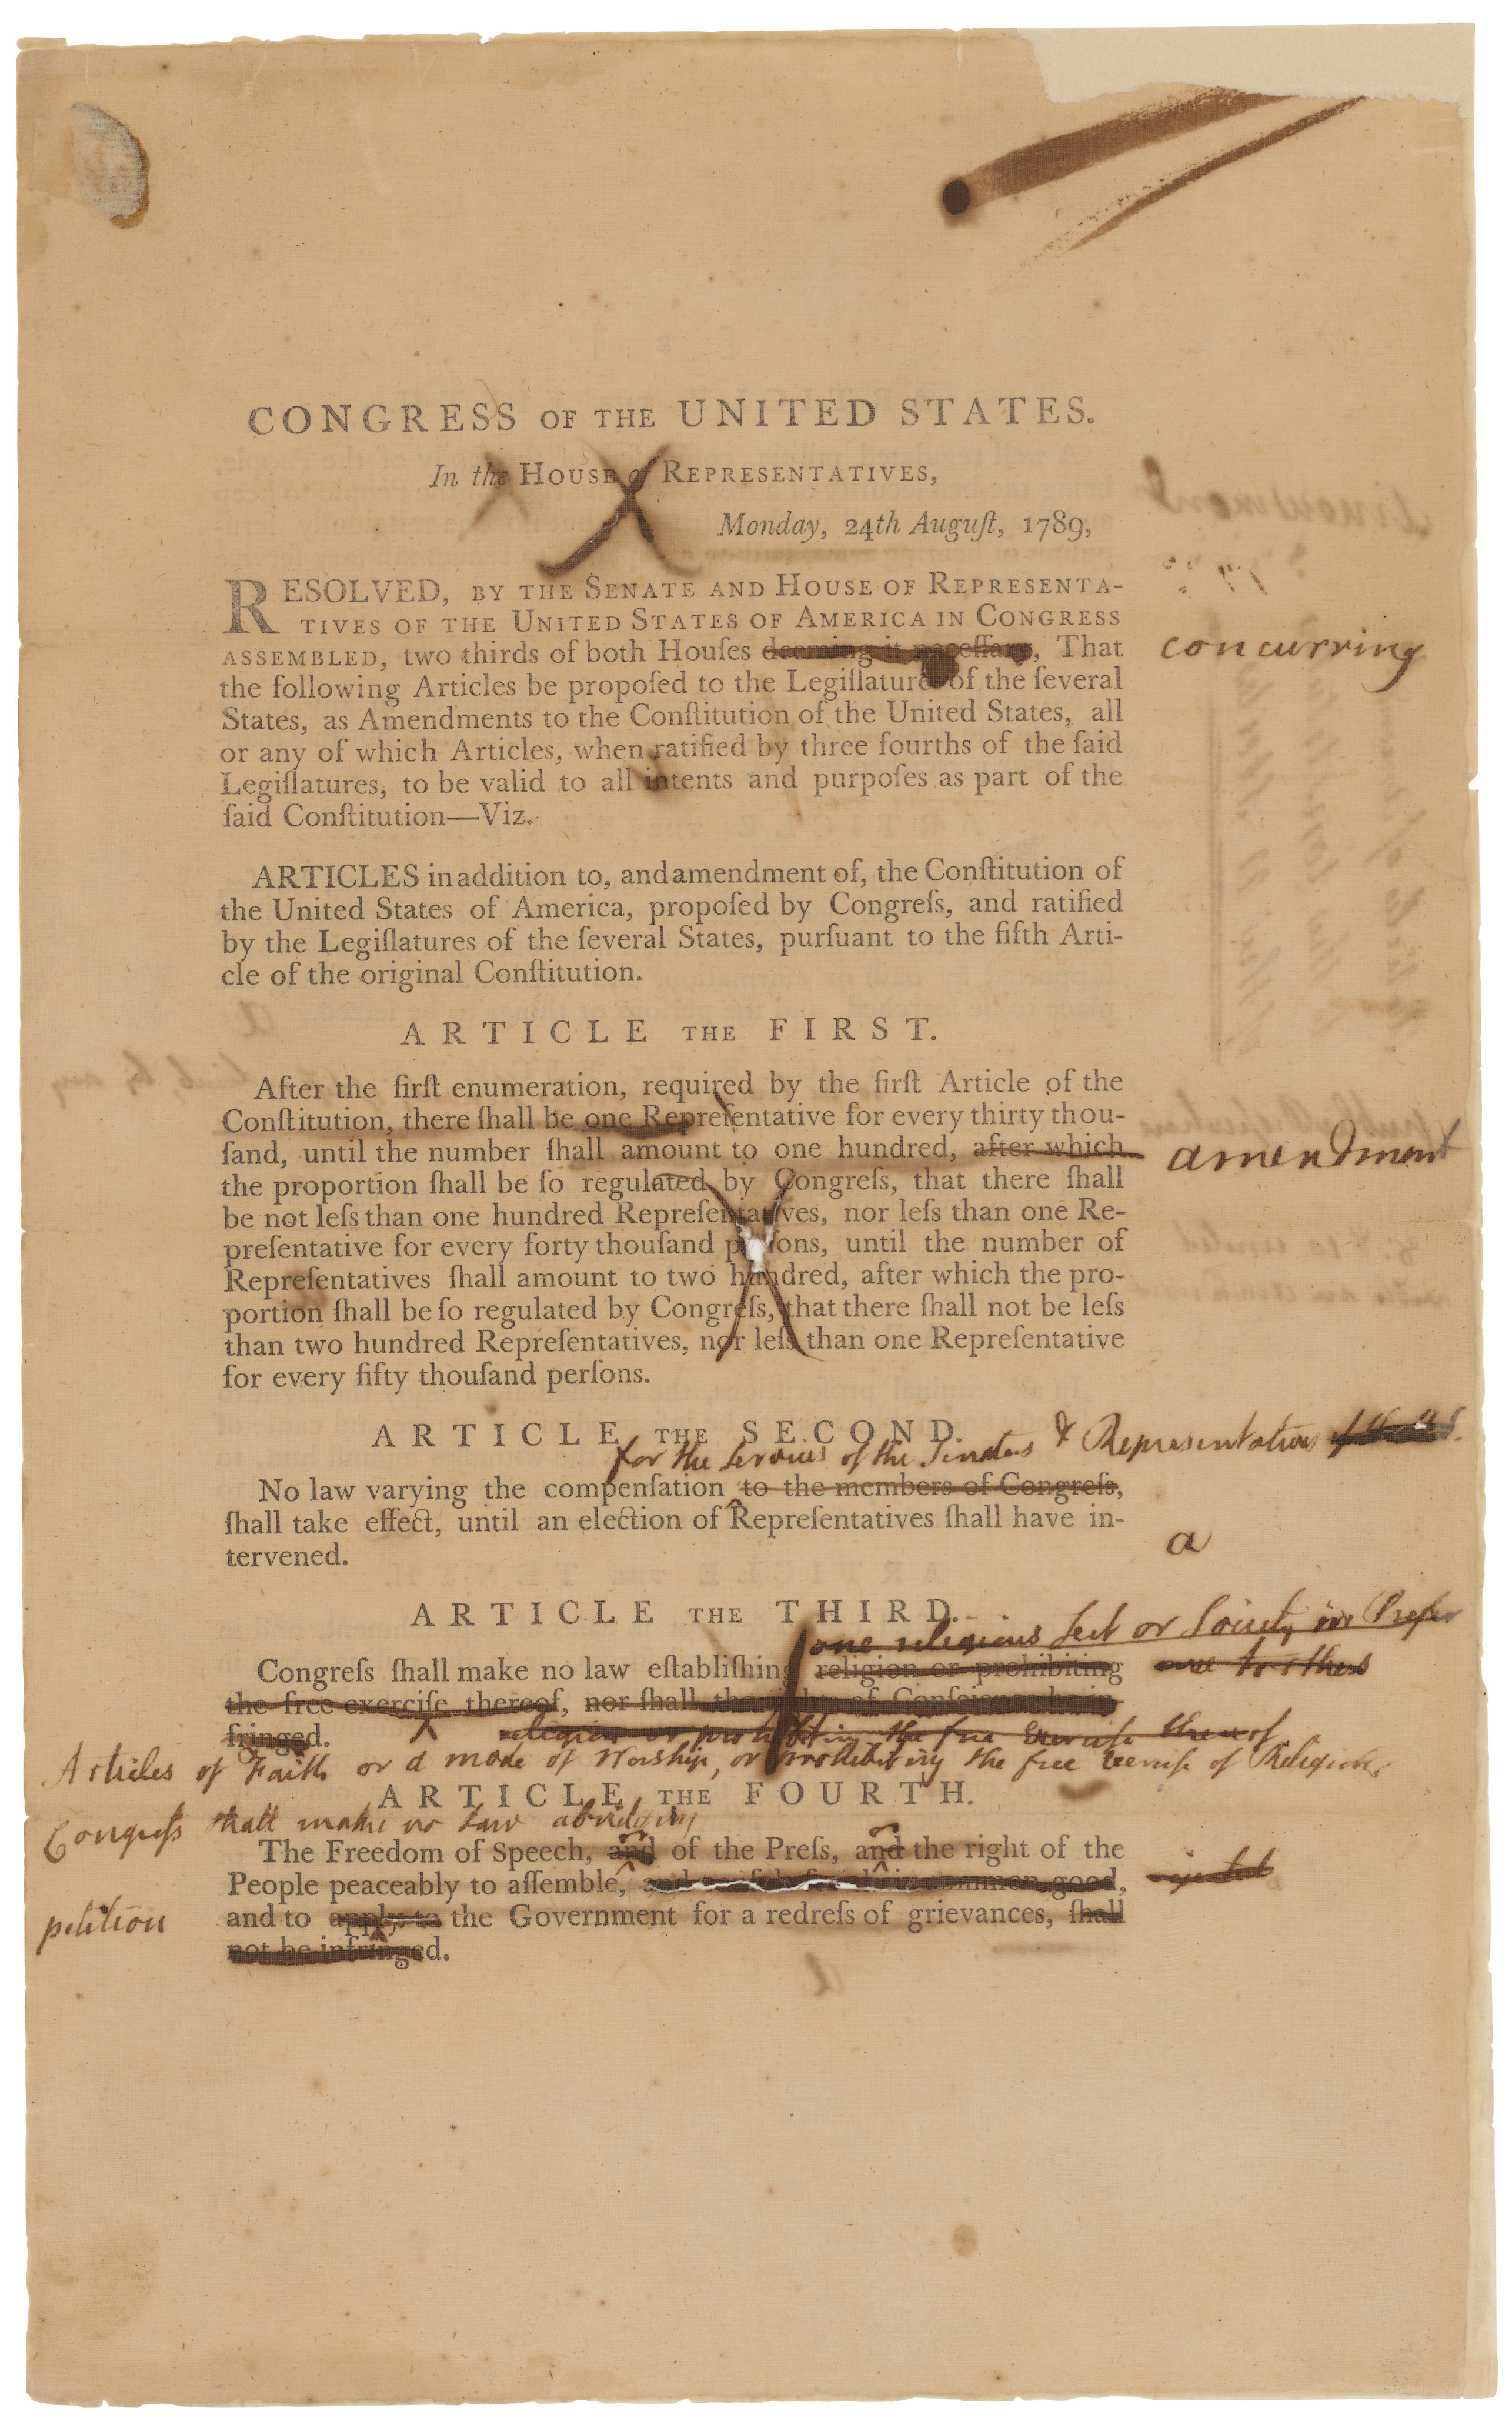 CONGRESS OF THE UNITED STATES.
In the HOUSE of REPRESENTATIVES,
Monday, 24th Auguſt, 1789,
RESOLVED, BY THE SENATE AND HOUSE OF REPRESENTA-
TIVES OF THE UNITED STATES OF AMERICA IN CONGRESS
ASSEMBLED, two thirds of both Houſes deeming it neceſſary, That concurring
the following Articles be propoſed to the Legiſlatures of the ſeveral
States, as Amendments to the Conſtitution of the United States, all
or any of which Articles, when ratified by three fourths of the ſaid
Legiſlatures, to be valid to all intents and purpoſes as part of the
ſaid Conſtitution—Viz.
ARTICLES in addition to, and amendment of, the Conſtitution of
the United States of America, propoſed by Congreſs, and ratified
by the Legiſlatures of the ſeveral States, purſuant to the fifth Arti-
cle of the original Conſtitution.
ARTICLE THE FIRST.
After the firſt enumeration, required by the firſt Article of the
Conſtitution, there ſhall be one Repreſentative for every thirty thou-
ſand, until the number ſhall amount to one hundred, after which amendment
the proportion ſhall be ſo regulated by Congreſs, that there ſhall
be not leſs than one hundred Repreſentatives, nor leſs than one Re-
preſentative for every forty thouſand perſons, until the number of
Repreſentatives ſhall amount to two hundred, after which the pro-
portion ſhall be ſo regulated by Congreſs, that there ſhall not be leſs
than two hundred Repreſentatives, nor leſs than one Repreſentative
for every fifty thouſand perſons.
ARTICLE THE SECOND.
for the services of the Senators & Representatives
No law varying the compenſation to the members of Congreſs,
ſhall take effect, until an election of Repreſentatives ſhall have in-
a
tervened.
ARTICLE THE THIRD.
one religious Sect or Society in Prefer
Congreſs ſhall make no law eſtabliſhing religion or prohibiting ence to others
the free exerciſe thereof, nor ſhall the rights of Conſcience be in-
fringed. religion or prohibiting the free Exercise thereof
Articles of Faith or a mode of Worship, or prohibiting the free Exercise of Religion,
ARTICLE THE FOURTH.
Congreſs shall make no Law abridging
The Freedom of Speech, and of the Preſs, and the right of the
or or
People peaceably to aſſemble, and conſult for their common good,
petition and to apply to the Government for a redreſs of grievances, ſhall
not be infringed.